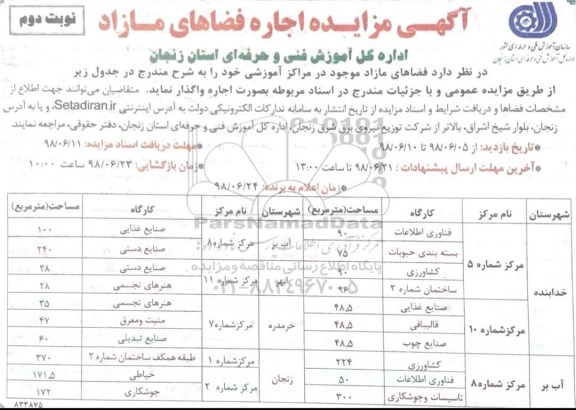 آگهی مزایده اجاره فضاهای مازاد
نوبت دوم
اداره کل آموزش فنی و حرفه‌ای استان زنجان
در نظر دارد فضاهای مازاد موجود در مراکز آموزشی خود را به شرح مندرج در جدول زیر
از طریق مزایده عمومی و با جزئیات مندرج در اسناد مربوطه بصورت اجاره واگذار نماید. متقاضیان می‌توانند جهت اطلاع از
مشخصات فضاها و دریافت شرایط و اسناد مزایده از تاریخ انتشار به سامانه تدارکات الکترونیکی دولت به آدرس اینترنتی Setadiran.ir، و یا به آدرس
زنجان، بلوار شیخ اشراق، بالاتر از شرکت توزیع نیروی برق شرق زنجان، اداره کل آموزش فنی و حرفه‌ای استان زنجان، دفتر حقوقی، مراجعه نمایند.
تاریخ بازدید: از ۹۸/۰۶/۰۵ تا ۹۸/۰۶/۱۰
مهلت دریافت اسناد مزایده: ۹۸/۰۶/۱۱
آخرین مهلت ارسال پیشنهادات: ۹۸/۰۶/۲۱ تا ساعت ۱۳:۰۰
زمان بازگشایی: ۹۸/۰۶/۲۳ ساعت ۱۰:۰۰
زمان اعلام به برنده: ۹۸/۰۶/۲۴
شهرستان نام مرکز کارگاه مساحت(مترمربع) شهرستان نام مرکز کارگاه مساحت(مترمربع)
خدابنده مرکز شماره ۵ فناوری اطلاعات ۹۰
بسته بندی حبوبات ۷۵
کشاورزی ۹۰
ساختمان شماره ۲ ۹۶
مرکزشماره ۱۰ صنایع غذایی ۴۸,۵
قالیبافی ۴۸,۵
صنایع چوب ۴۸,۵
آب بر مرکز شماره۸ کشاورزی ۲۲۴
فناوری اطلاعات ۵۰
تاسیسات وجوشکاری ۳۰۰
آب بر مرکز شماره۸ صنایع غذایی ۱۰۰
صنایع دستی ۲۴۰
ابهر مرکز شماره ۱۱ صنایع دستی ۲۸
هنرهای تجسمی ۲۸
خرمدره مرکزشماره۷ هنرهای تجسمی ۳۵
منبت ومعرق ۴۷
صنایع تبدیلی ۶۰
زنجان مرکزشماره ۱ طبقه همکف ساختمان شماره ۲ ۳۷۰
مرکز شماره ۲ خیاطی ۱۷۱,۵
جوشکاری ۱۷۲
۸۳۴۸۷۵
ParsNamadData
پایگاه اطلاع رسانی مناقصه و مزایده
۰۲۱-۸۸۳۴۹۶۷۰-۵